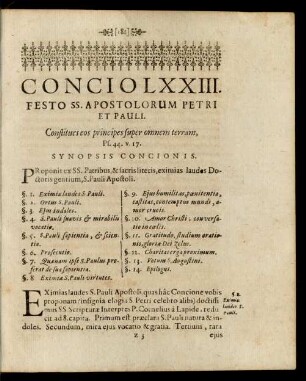 [181]
CONCIO LXXIII.
FESTO SS. APOSTOLORUM PETRI
ET PAULI.
Constitues eos principes super omnem terram,
Ps. 44. v. 17.
SYNOPSIS CONCIONIS.
PRoponit ex SS. Patribus, & sacris litteris, eximias laudes Do-
ctoris gentium, S. Pauli Apostoli.
§. 1. Eximiæ laudes S. Pauli.
§. 2. Ortus S. Pauli.
§. 3. Ejus indoles.
§. 4. S. Pauli suavis & mirabilis
vocatio.
§. 5. S. Pauli sapientia, & scien-
tia.
§. 6. Prosecutio.
§. 7. Quænam ipse S. Paulus pro-
ferat de sua sapientia.
§. 8. Eximiæ S. Pauli virtutes.
§. 9. Ejus humilitas, pœnitentia,
castitas, contemptus mundi, a-
mor crucis.
§. 10. Amor Christi. conversa-
tio in cœlis.
§. 11. Gratitudo, studium orati-
onis, gloriæ Dei Zelus.
§. 12. Charitas erga proximum.
§. 13. Votum S. Augustini.
§. 14. Epilogus.
EXimias laudes S. Pauli Apostoli, quas hac Concione vobis
proponam (insignia elogia S. Petri celebro alibi) doctissi-
mus SS. Scripturæ Interpres P. Cornelius à Lapide, redu-
cit ad 8. capita. Primum est præclara S. Pauli natura & in-
doles. Secundum, mira ejus vocatio & gratia. Tertium, rara
§. 1.
Eximiæ
laudes S.
Pauli.
z 3 ejus